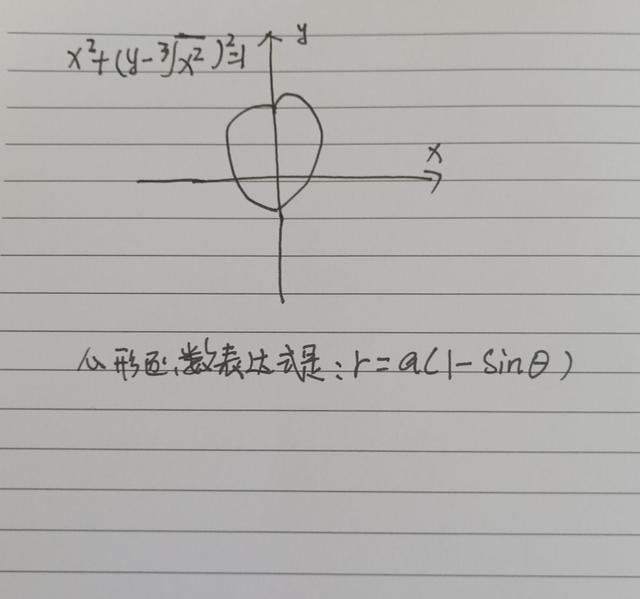 x²+(y-³√x²)²=1
y
x
心形函数表达式是：r=a(1-sinθ)